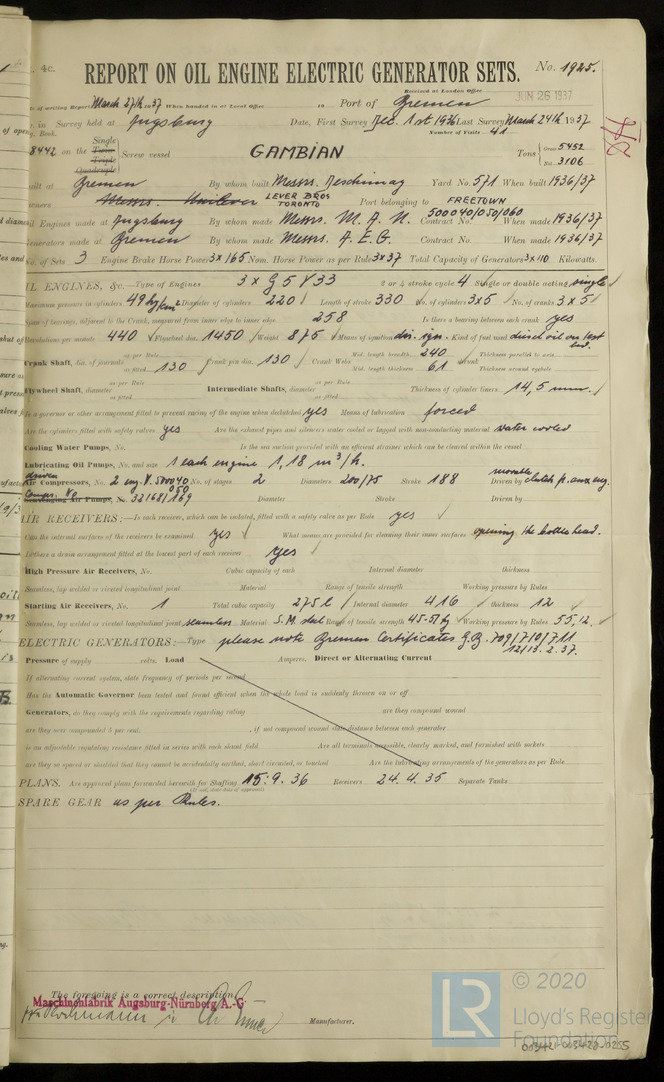 4c.
REPORT ON OIL ENGINE ELECTRIC GENERATOR SETS. No. 1925.
Received at London Office JUN 26 1937
of writing Report March 27th 1937 When handed in at Local Office 19 Port of Bremen
in Survey held at Augsburg Date, First Survey Dec. 1st 1936 Last Survey March 24th 1937
Book. Number of Visits 41
8442 on the Single Twin Triple Quadruple Screw vessel GAMBIAN Tons Gross 5452 Net 3106
built at Bremen By whom built Messrs. Deschimag Yard No. 571 When built 1936/37
Owners Messrs. Unilever LEVER BROS TORONTO Port belonging to FREETOWN
Oil Engines made at Augsburg By whom made Messrs. M. A. N. Contract No. 500040/050/060 When made 1936/37
Generators made at Bremen By whom made Messrs. A. E. G. Contract No. When made 1936/37
No. of Sets 3 Engine Brake Horse Power 3x165 Nom. Horse Power as per Rule 3x37 Total Capacity of Generators 3x110 Kilowatts.
OIL ENGINES, &c.—Type of Engines 3 x G 5 V 33 2 or 4 stroke cycle 4 Single or double acting single
Maximum pressure in cylinders 49 kg/cm² Diameter of cylinders 220 Length of stroke 330 No. of cylinders 3x5 No. of cranks 3x5
Span of bearings, adjacent to the Crank, measured from inner edge to inner edge 258 Is there a bearing between each crank yes
Revolutions per minute 440 Flywheel dia. 1450 Weight 875 Means of ignition dir. ign. Kind of fuel used diesel oil on test bed.
Crank Shaft, dia. of journals as per Rule as fitted 130 Crank pin dia. 130 Crank Webs Mid. length breadth 240 Mid. length thickness 61 shrunk Thickness parallel to axis Thickness around eyehole
Flywheel Shaft, diameter as per Rule as fitted Intermediate Shafts, diameter as per Rule as fitted Thickness of cylinder liners 14,5 mm.
Is a governor or other arrangement fitted to prevent racing of the engine when declutched yes Means of lubrication forced
Are the cylinders fitted with safety valves yes Are the exhaust pipes and silencers water cooled or lagged with non-conducting material water cooled
Cooling Water Pumps, No. Is the sea suction provided with an efficient strainer which can be cleared within the vessel
Lubricating Oil Pumps, No. and size 1 each engine 1,18 m³/h.
driven movable
Air Compressors, No. 2 eng. N. 500040 050 No. of stages 2 Diameters 200/75 Stroke 188 Driven by clutch fr. aux. eng.
Compr. No Scavenging Air Pumps, No. 33168/169 Diameter Stroke Driven by
AIR RECEIVERS:—Is each receiver, which can be isolated, fitted with a safety valve as per Rule yes
Can the internal surfaces of the receivers be examined yes What means are provided for cleaning their inner surfaces opening the bottlehead.
Is there a drain arrangement fitted at the lowest part of each receiver yes
High Pressure Air Receivers, No. Cubic capacity of each Internal diameter thickness
Seamless, lap welded or riveted longitudinal joint Material Range of tensile strength Working pressure by Rules
Starting Air Receivers, No. 1 Total cubic capacity 275 l Internal diameter 416 thickness 12
Seamless, lap welded or riveted longitudinal joint seamless Material S.M. steel Range of tensile strength 45-51 kg Working pressure by Rules 55,12.
ELECTRIC GENERATORS:—Type please note Bremen Certificates G.B. 709/710/711
12/13. 2. 37.
Pressure of supply volts. Load Amperes. Direct or Alternating Current
If alternating current system, state frequency of periods per second
Has the Automatic Governor been tested and found efficient when the whole load is suddenly thrown on or off
Generators, do they comply with the requirements regarding rating are they compound wound
are they over compounded 5 per cent. , if not compound wound state distance between each generator
is an adjustable regulating resistance fitted in series with each shunt field Are all terminals accessible, clearly marked, and furnished with sockets
are they so spaced or shielded that they cannot be accidentally earthed, short circuited, or touched Are the lubricating arrangements of the generators as per Rule
PLANS. Are approved plans forwarded herewith for Shafting 15. 9. 36 Receivers 24. 4. 35 Separate Tanks
(If not, state date of approval)
SPARE GEAR as per Rules.
The foregoing is a correct description
Maschinenfabrik Augsburg-Nürnberg A.-G
Manufacturer.
LR © 2020
Lloyd's Register
Foundation
003421-003428-0255